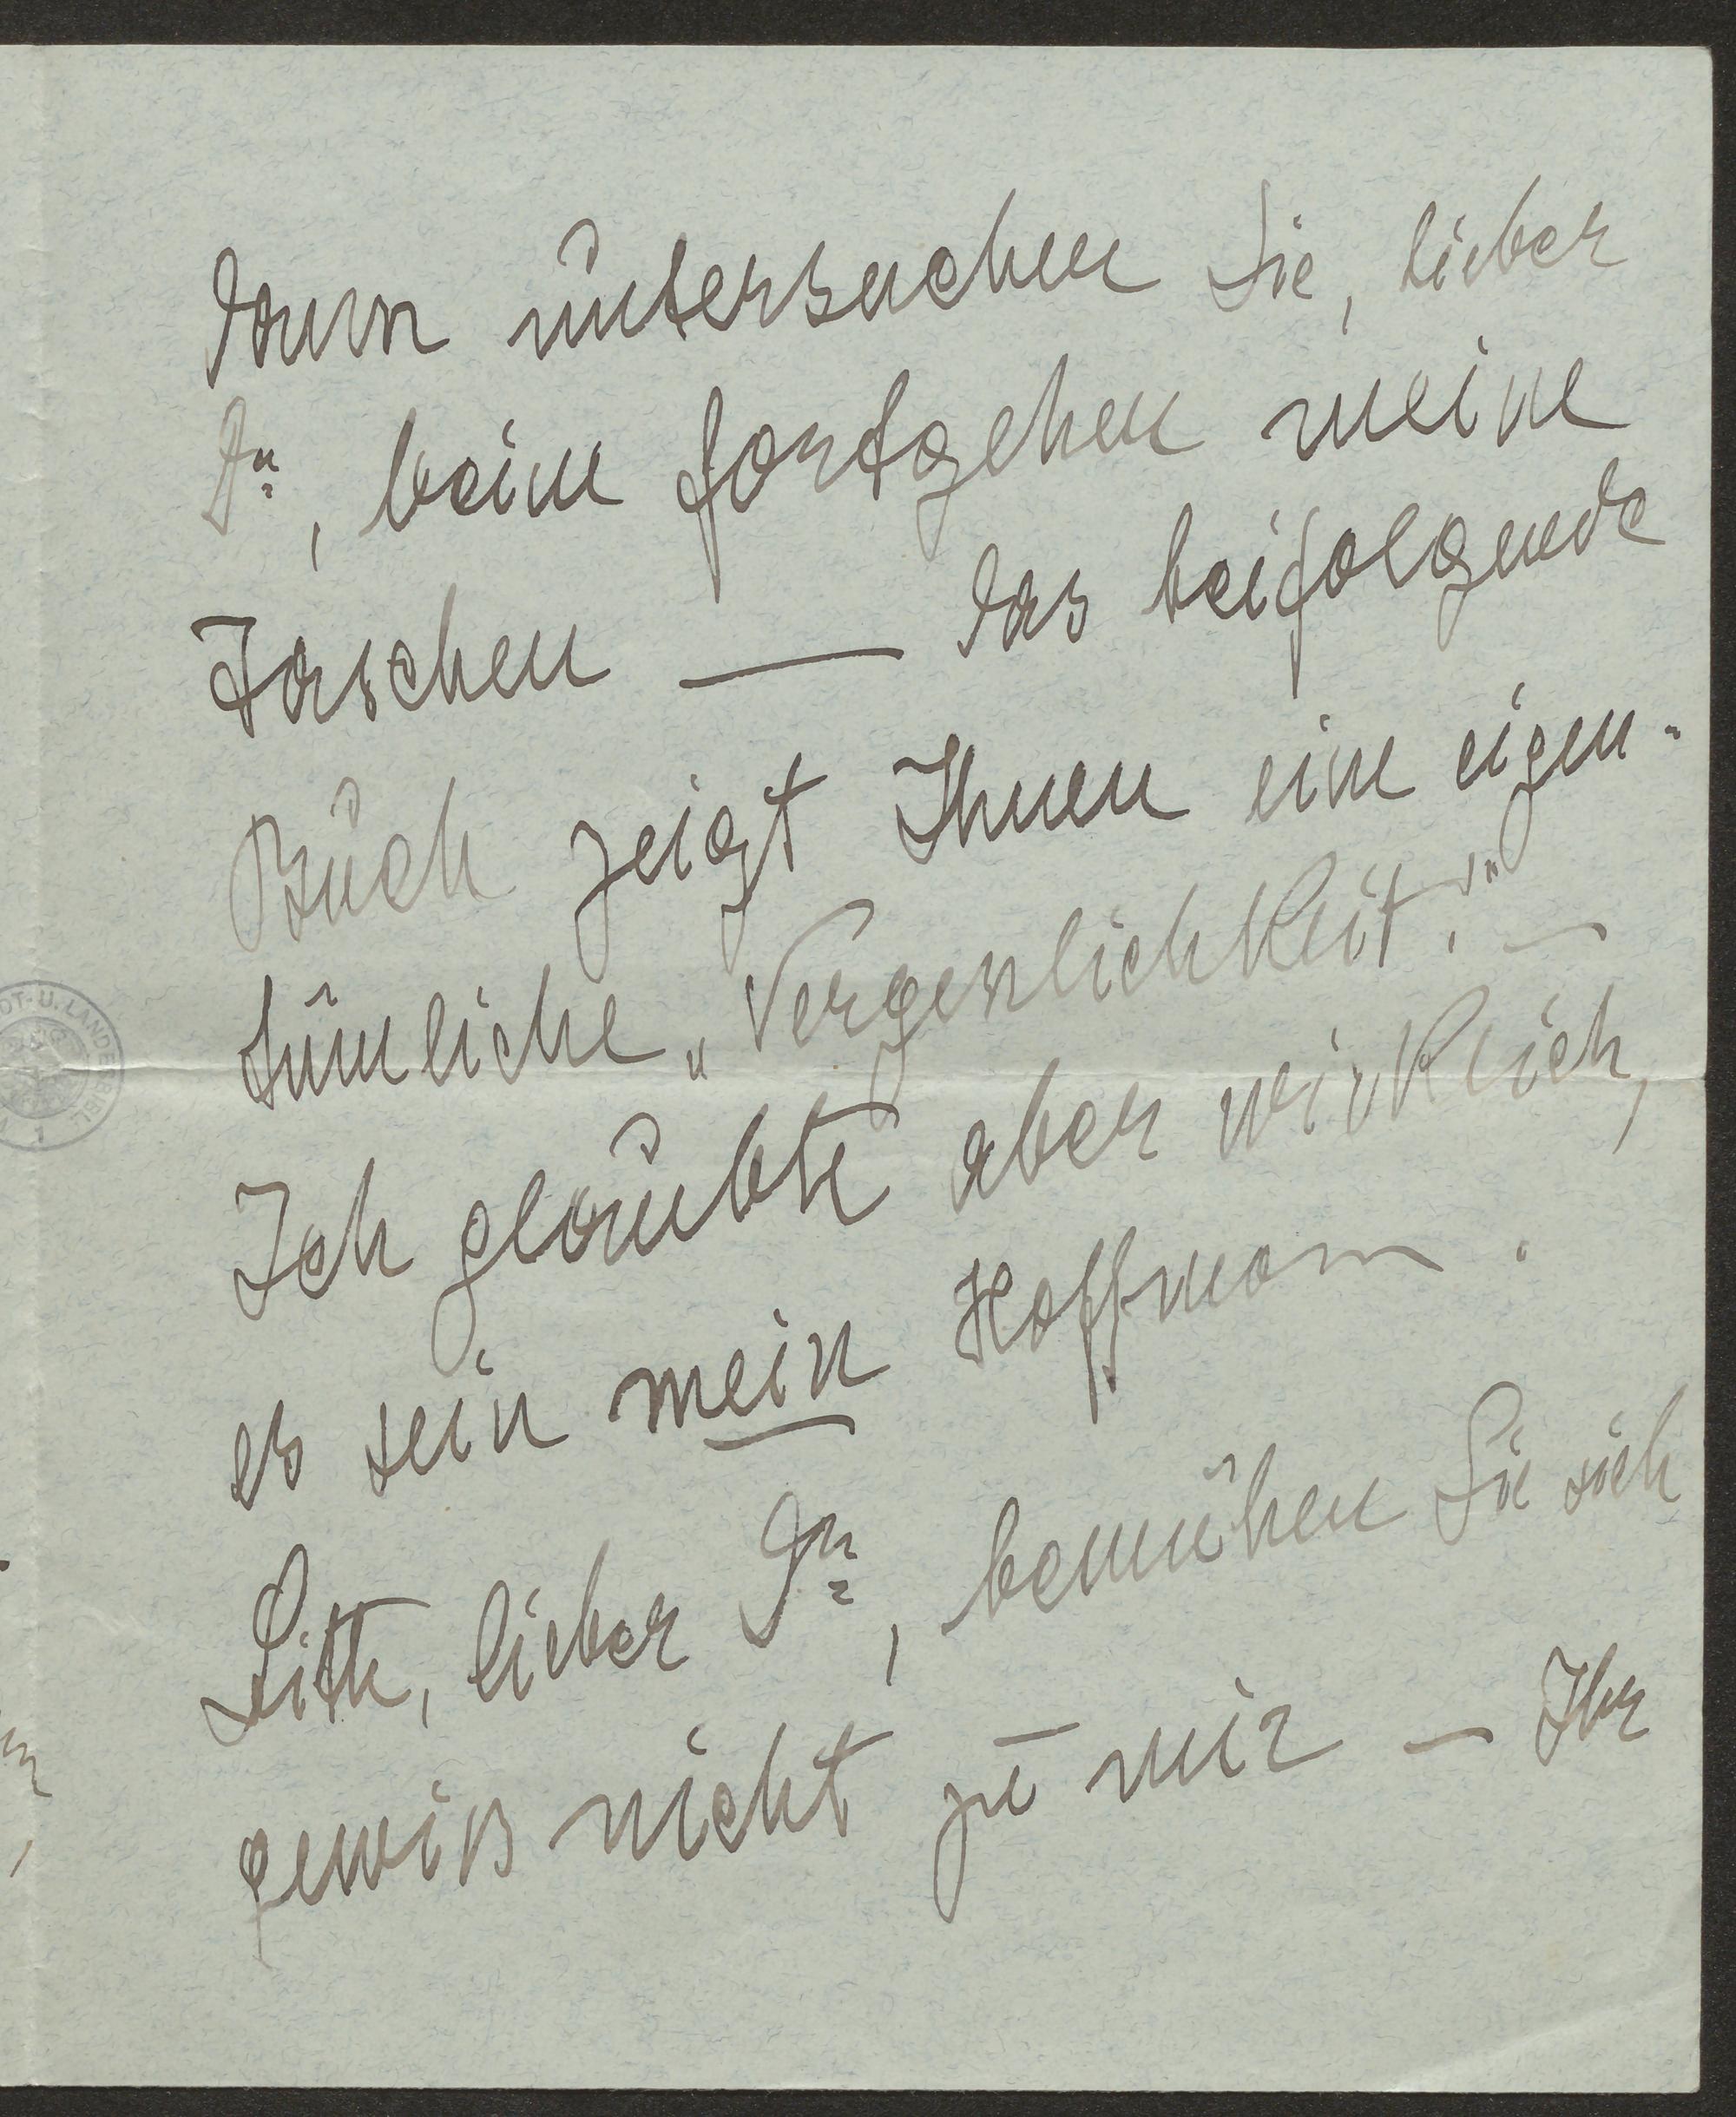 dann untersuchen Sie, lieber
Dr, beim fortgehen meine
Taschen — das beifolgende
Buch zeigt Ihnen eine eigen-
tümliche „Vergesslichkeit!" —
Ich glaubte aber wirklich,
es sein mein Hoffmann.
Bitte, lieber Dr, bemühen Sie sich
gewiss nicht zu mir — Ihr